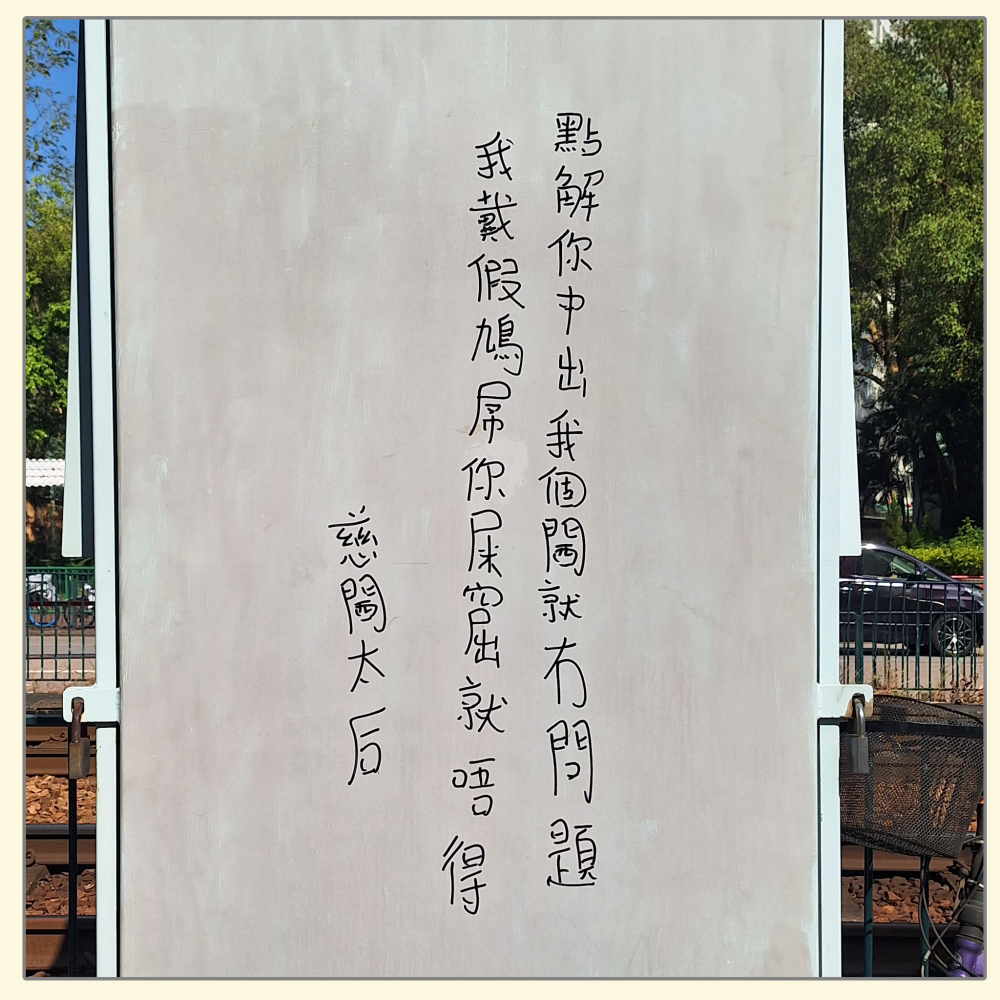 點解你中出我個閪就冇問題
我戴假鳩屌你屎窟就唔得
慈閪太后